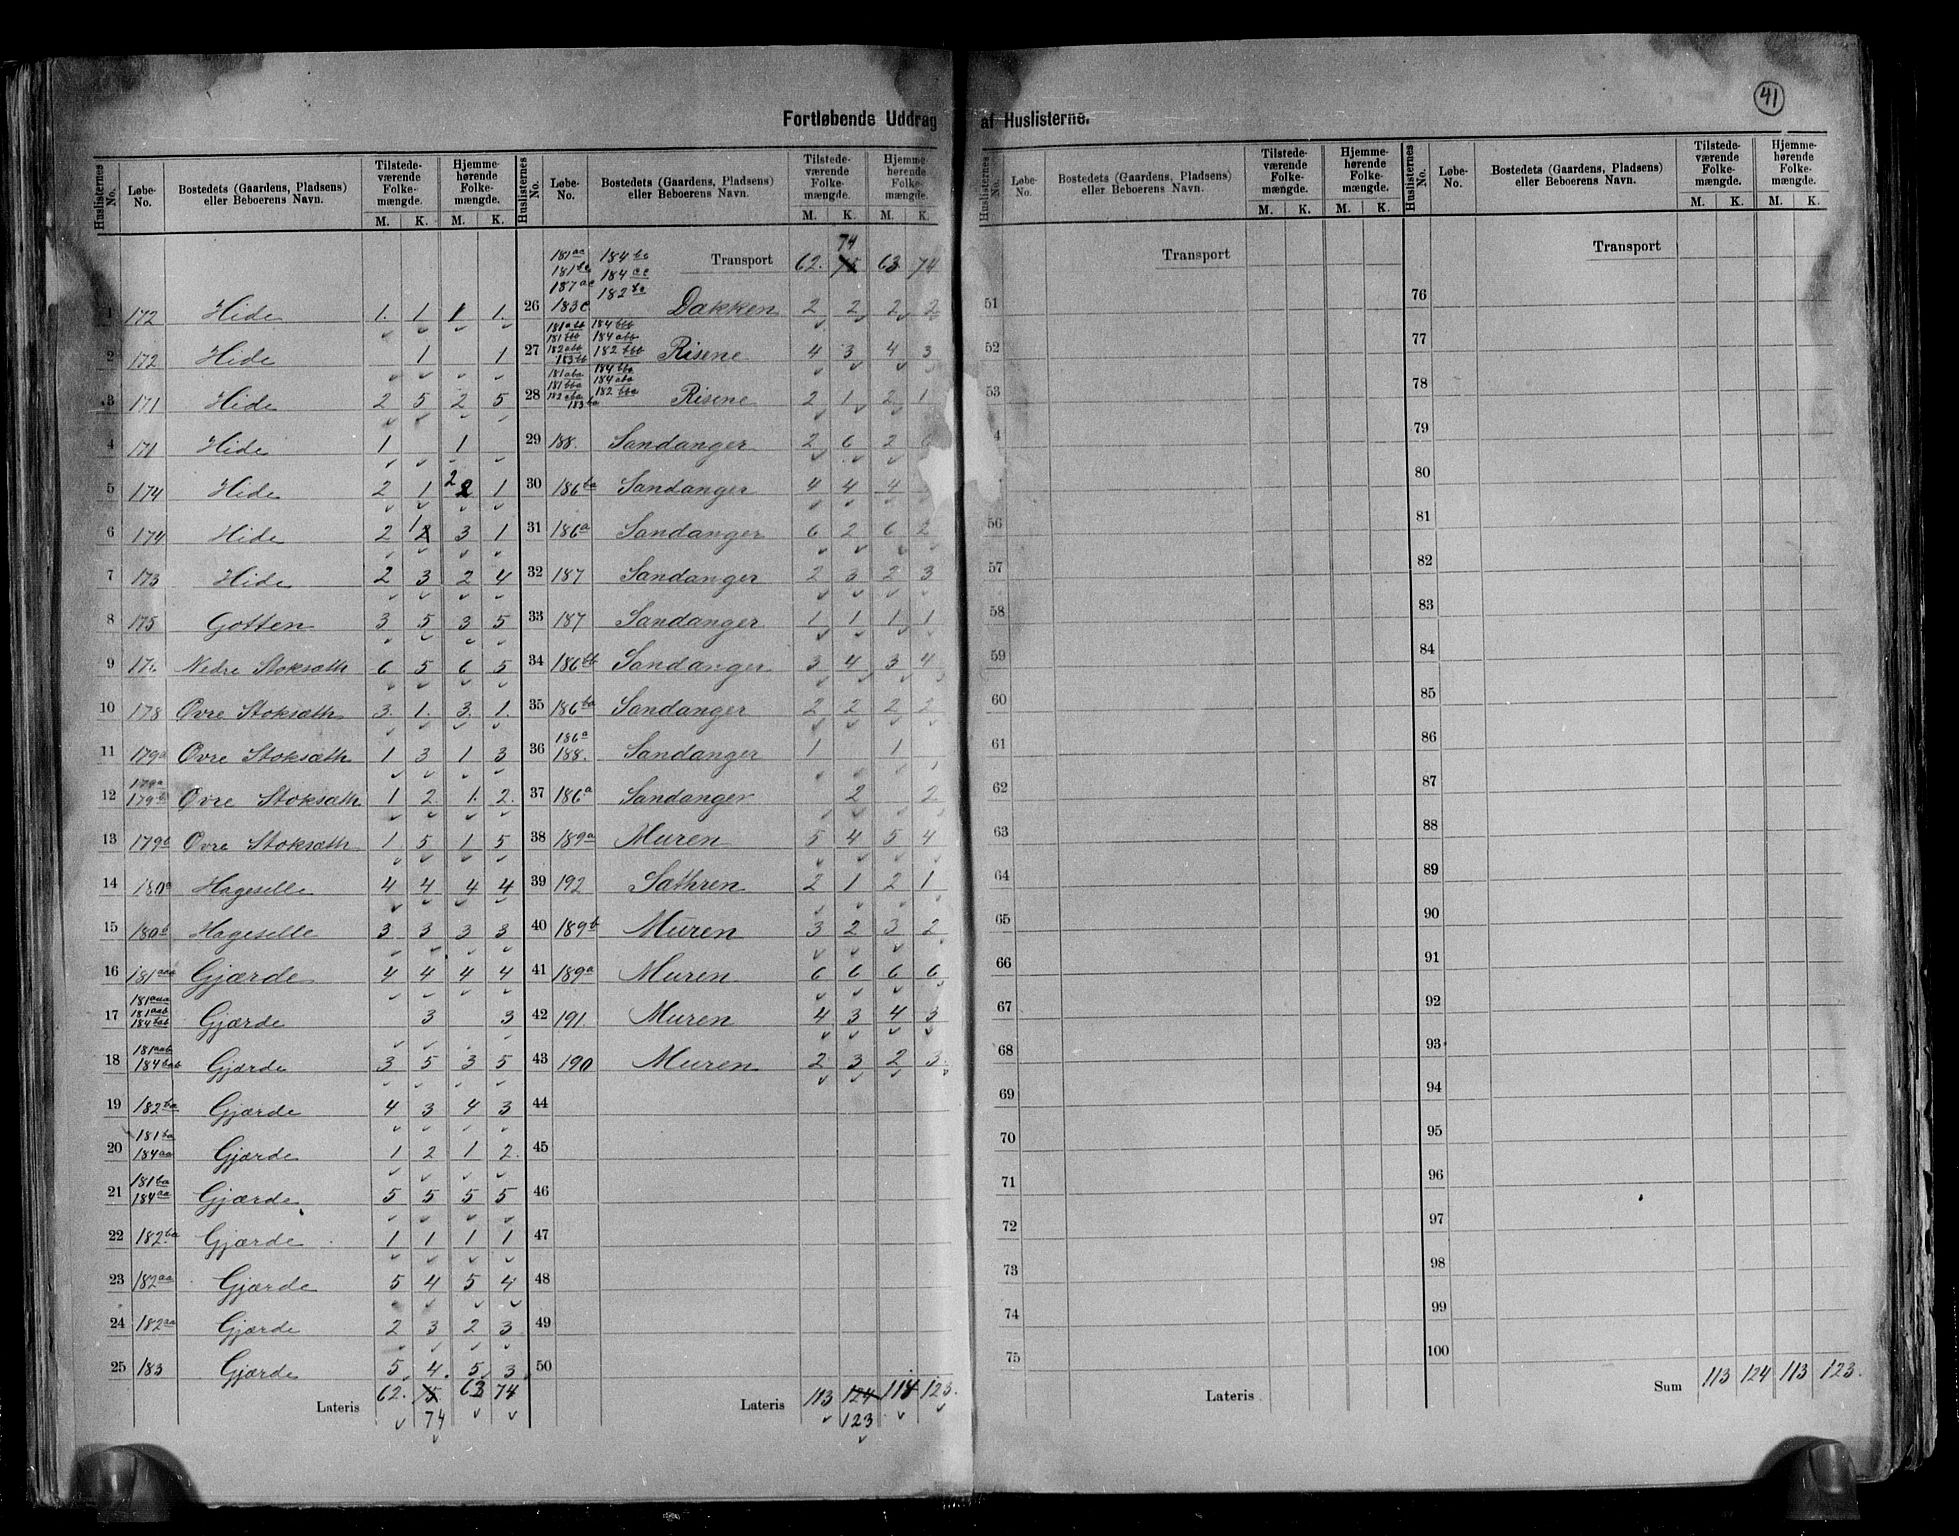 41
Fortløbende Uddrag af Huslisterne.
Huslisternes No. Løbe-No. Bostedets (Gaardens, Pladsens) eller Beboerens Navn. Tilstedeværende Folkemængde. M. K. Hjemmehørende Folkemængde. M. K.
1 172 Hide 1. 1 1 1.
2 172 Hide 1 1
3 171 Hide 2 5 2 5
4 171 Hide 1 1
5 174 Hide 2 1 2 1
6 174 Hide 2 1 3 1
7 173 Hide 2 3 2 4
8 175 Gotten 3 5 3 5
9 Nedre Stoksæth 6 5 6 5
10 178 Øvre Stoksæth 3. 1. 3. 1.
11 179a Øvre Stoksæth 1 3 1 3
12 179a 179b Øvre Stoksæth 1 2. 1. 2.
13 179b Øvre Stoksæth 1 5 1 5
14 180a Hageselle 4 4 4 4
15 180b Hageselle 3 3 3 3
16 181aaa Gjærde 4 4 4 4
17 181aaa 181aab 184bab Gjærde 3 3
18 181aab 184bab Gjærde 3 5 3 5
19 182ba Gjærde 4 3 4 3
20 181ba 184aa Gjærde 1 2 1 2.
21 181ba 184aa Gjærde 5 5 5 5
22 182ba Gjærde 1 1 1 1
23 182aa Gjærde 5 4 5 4
24 182aa Gjærde 2 3 2 3
25 183 Gjærde 5 4. 5 3
Lateris 62. 75 63 74
74
Huslisternes No. Løbe-No. Bostedets (Gaardens, Pladsens) eller Beboerens Navn. Tilstedeværende Folkemængde. M. K. Hjemmehørende Folkemængde. M. K.
74
Transport 62. 75 63 74
181ac 184bc
181bc 184ac
187ac 182bc
26 183c Dakken 2 2 2 2
181abb 184bbb
181bbb 184abb
27 182abb 182bbb 183bb Risene 4 3 4 3
181aba 184bba
181bba 184aba
28 182aba 182bba 183ba Risene 2 1 2 1
29 188. Sandanger 2 6 2 6
30 186ba Sandanger 4 4 4
31 186a Sandanger 6 2 6 2
32 187 Sandanger 2 3 2 3
33 187 Sandanger 1 1 1 1
34 186bb Sandanger 3 4 3 4
35 186ba Sandanger 2 2 2 2
36 186a 188. Sandanger 1 1
37 186a Sandanger 2 2
38 189a Muren 5 4 5 4
39 192 Sæthren 2 1 2 1
40 189b Muren 3 2 3 2
41 189a Muren 6 6 6 6
42 191 Muren 4 3 4 3
43 190 Muren 2 3 2 3
44
45
46
47
48
49
50
Lateris 113 124 114 123.
123
Huslisternes No. Løbe-No. Bostedets (Gaardens, Pladsens) eller Beboerens Navn. Tilstedeværende Folkemængde. M. K. Hjemmehørende Folkemængde. M. K.
Transport
51
52
53
4
56
57
58
59
60
61
62
63
64
65
66
67
68
69
70
71
72
73
74
75
Lateris
Huslisternes No. Løbe-No. Bostedets (Gaardens, Pladsens) eller Beboerens Navn. Tilstedeværende Folkemængde. M. K. Hjemmehørende Folkemængde. M. K.
Transport
76
77
78
79
80
81
82
83
84
85
86
87
88
89
90
91
92
93
94
95
96
97
98
99
100
Sum 113 124 113 123.